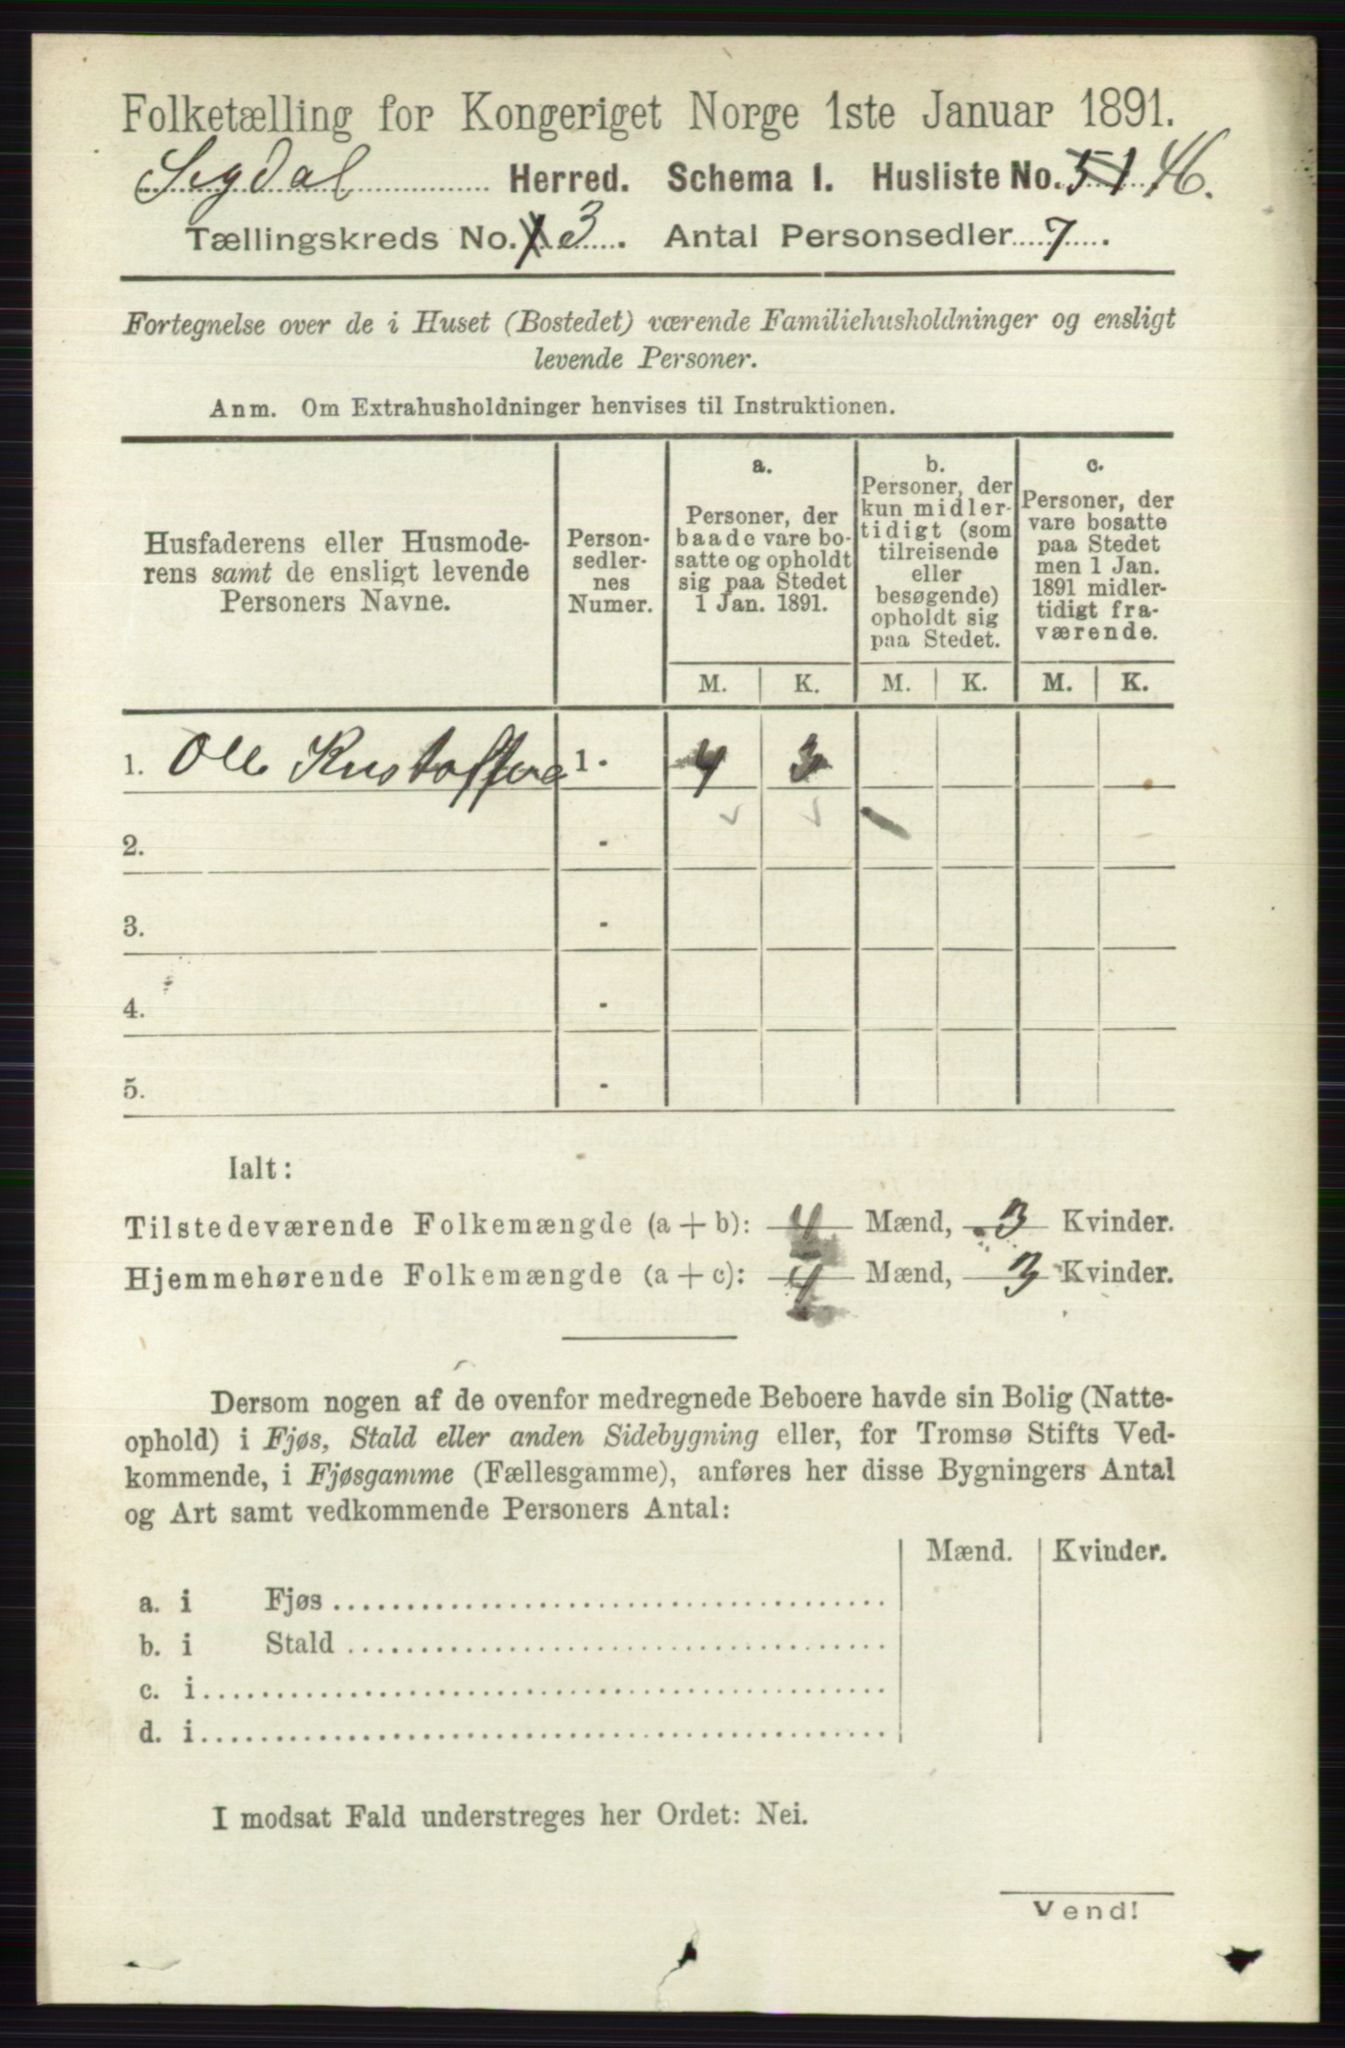 Folketælling for Kongeriget Norge 1ste Januar 1891.
Sigdal Herred. Schema 1. Husliste No. 51 46.
Tællingskreds No. 3. Antal Personsedler 7.
Fortegnelse over de i Huset (Bostedet) værende Familiehusholdninger og ensligt
levende Personer.
Anm. Om Extrahusholdninger henvises til Instruktionen.
Husfaderens eller Husmode-
rens samt de ensligt levende
Personers Navne.
Person-
sedler-
nes
Numer.
a.
Personer, der
baade vare bo-
satte og opholdt
sig paa Stedet
1 Jan. 1891.
b.
Personer, der
kun midler-
tidigt (som
tilreisende
eller
besøgende)
opholdt sig
paa Stedet.
c.
Personer, der
vare bosatte
paa Stedet
men 1 Jan.
1891 midler-
tidigt fra-
værende.
M. K. M. K. M. K.
1. Ole 1 - 4 3
2. -
3. -
4. -
5. -
Ialt:
Tilstedeværende Folkemængde (a + b): 4 Mænd, 3 Kvinder.
Hjemmehørende Folkemængde (a + c): 4 Mænd, 3 Kvinder.
Dersom nogen af de ovenfor medregnede Beboere havde sin Bolig (Natte-
ophold) i Fjøs, Stald eller anden Sidebygning eller, for Tromsø Stifts Ved-
kommende, i Fjøsgamme (Fællesgamme), anføres her disse Bygningers Antal
og Art samt vedkommende Personers Antal:
Mænd. Kvinder.
a. i Fjøs
b. i Stald
c. i
d. i
I modsat Fald understreges her Ordet: Nei.
Vend!